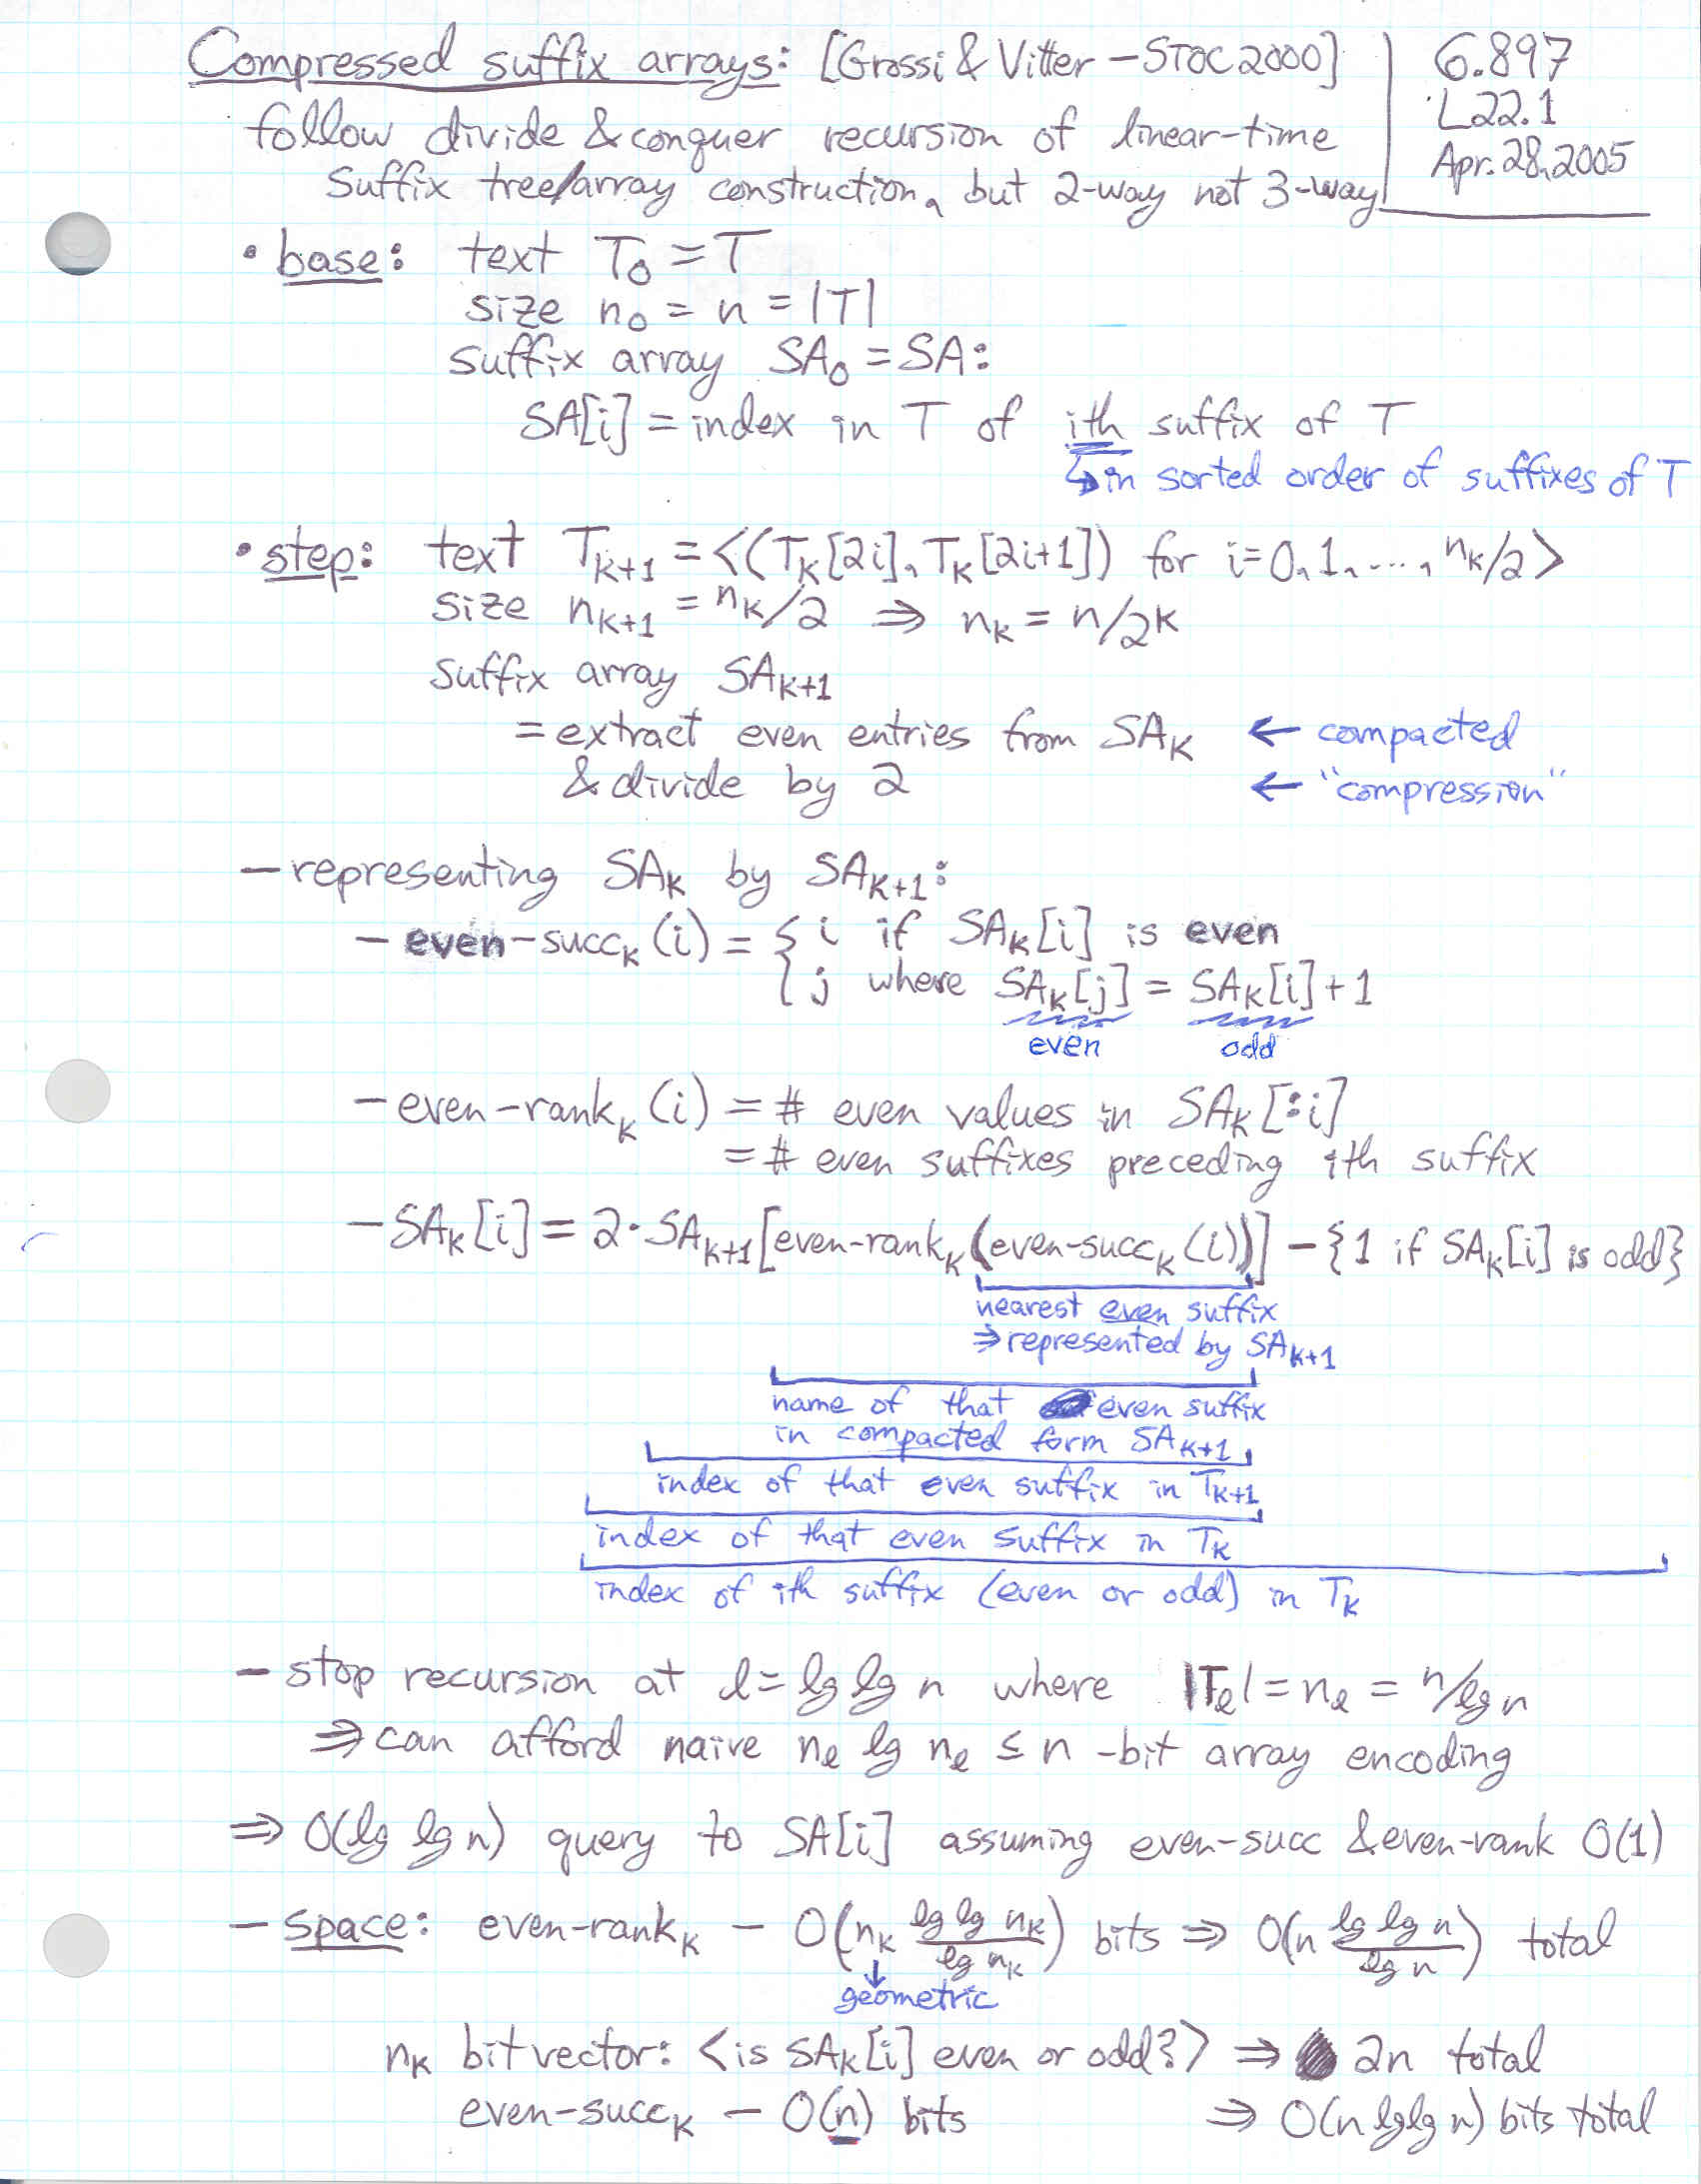 Compressed suffix arrays: [Grossi & Vitter – STOC 2000]
6.897
L22.1
Apr. 28, 2005
follow divide & conquer recursion of linear-time
suffix tree/array construction, but 2-way not 3-way
• base: text T₀ = T
size n₀ = n = |T|
suffix array SA₀ = SA:
SA[i] = index in T of ith suffix of T
↳ in sorted order of suffixes of T
• step: text Tₖ₊₁ = <(Tₖ[2i], Tₖ[2i+1]) for i=0, 1, ..., nₖ/2>
size nₖ₊₁ = nₖ/2 ⇒ nₖ = n/2ᵏ
suffix array SAₖ₊₁
= extract even entries from SAₖ ← compacted
& divide by 2 ← "compression"
– representing SAₖ by SAₖ₊₁:
– even-succₖ(i) = { i if SAₖ[i] is even
{ j where SAₖ[j] = SAₖ[i] + 1
even odd
– even-rankₖ(i) = # even values in SAₖ[:i]
= # even suffixes preceding ith suffix
– SAₖ[i] = 2 · SAₖ₊₁[even-rankₖ(even-succₖ(i))] – {1 if SAₖ[i] is odd}
nearest even suffix
⇒ represented by SAₖ₊₁
name of that even suffix
in compacted form SAₖ₊₁
index of that even suffix in Tₖ₊₁
index of that even suffix in Tₖ
index of ith suffix (even or odd) in Tₖ
– stop recursion at ℓ = lg lg n where |Tℓ| = nℓ = n/lg n
⇒ can afford naive nℓ lg nℓ ≤ n -bit array encoding
⇒ O(lg lg n) query to SA[i] assuming even-succ & even-rank O(1)
– space: even-rankₖ – O(nₖ lg lg nₖ / lg nₖ) bits ⇒ O(n lg lg n / lg n) total
↓
geometric
nₖ bit vector: <is SAₖ[i] even or odd?> ⇒ 2n total
even-succₖ – O(n) bits ⇒ O(n lg lg n) bits total